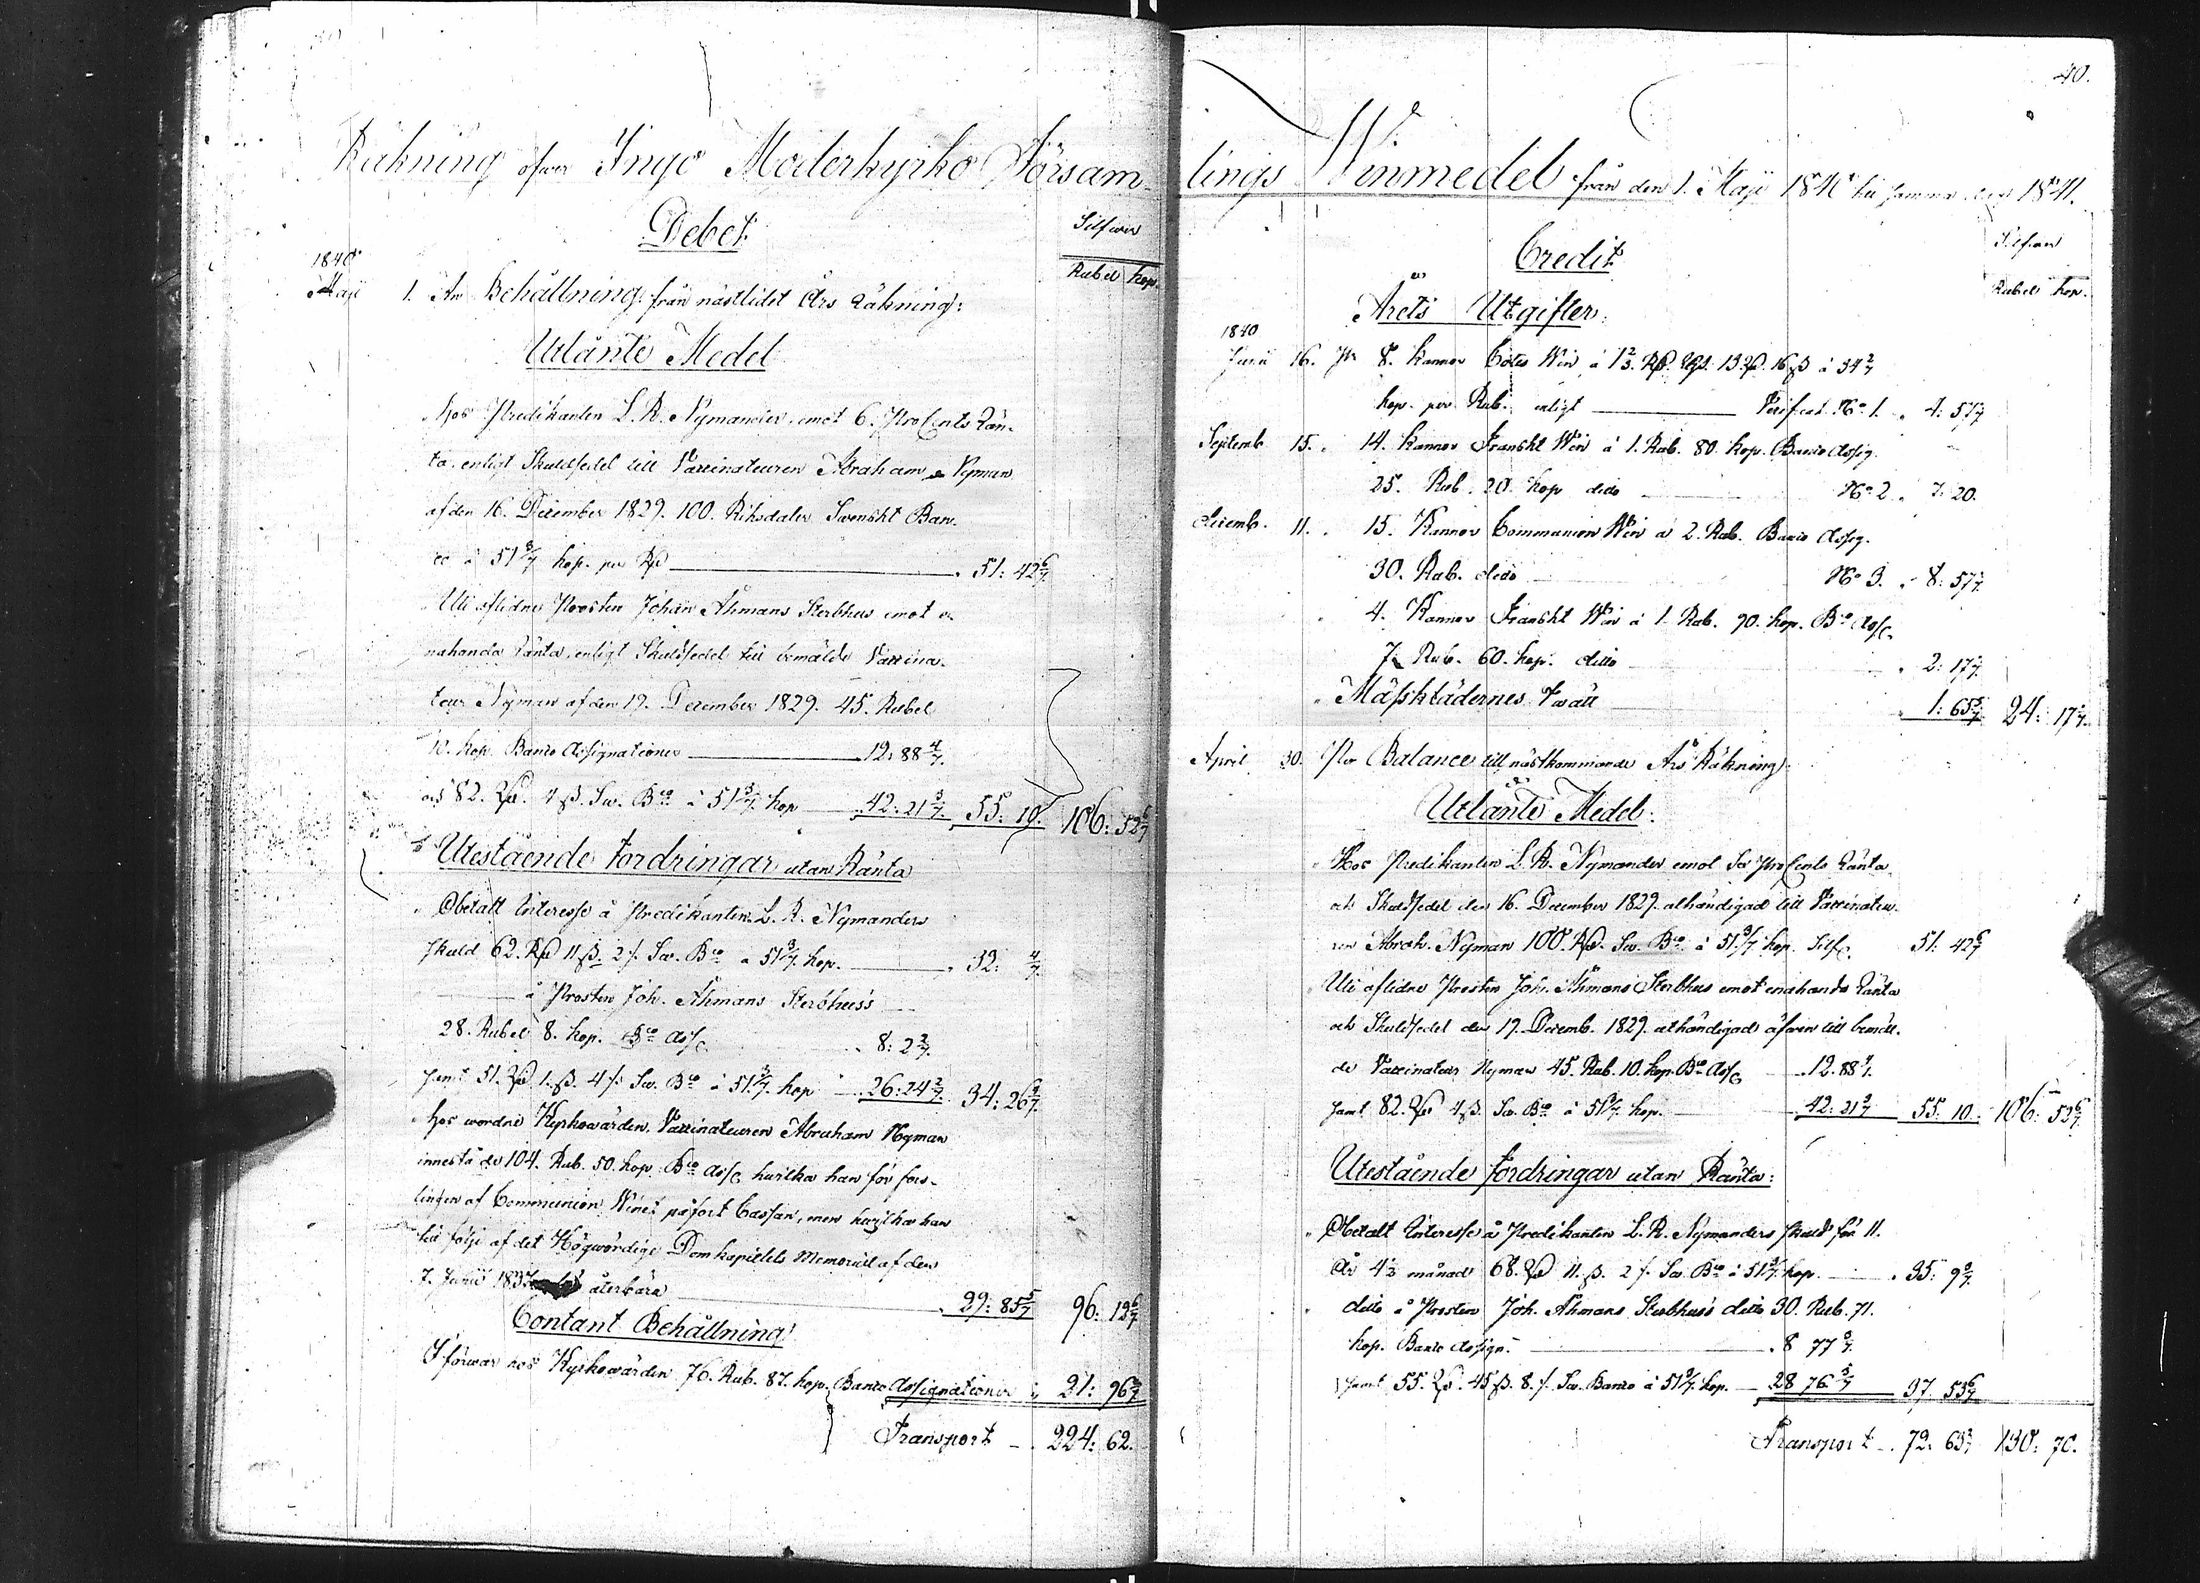 Räkning öfver Ingo Moderkyrko Församlings Winmedel från den 1. Maji 1840 till samma dag 1841.
Debet
Silfwer
Rubel kop.
1840
Maji 1. An Behållning från nästlidet Års räkning:
Utlånte Medel
Hos Predikanten L. R. Nymander, emot 6. ProCents Rän-
ta enligt Skuldsedel till Vaccinateuren Abraham Nyman
af den 16. December 1829. 100. Riksdaler Swenskt Ban-
co à 51 3/7 kop. per Rd 51: 42 6/7
Uti aflidne Prosten Johan Åhmans Sterbhus emot e-
nahanda ränta, enligt Skuldsedel till bemälde Vaccina-
teur Nyman af den 19. December 1829. 45. Rubel
10. kop. Banco Assignationer 12: 88 4/7.
och 82. Rd. 4 ß. Sw. Bco à 51 3/7. kop 42: 21 3/7. 55: 10. 106: 52 6/7
Utestående fordringar utan Ränta
Obetalt Interesse å Predikanten L. R. Nymanders
skuld 62. Rd 11 ß. 2 /. Sw. Bco à 51 3/7. kop. 32: 4/7.
å Prosten Joh. Åhmans Sterbhus's
28. Rubel 8. kop. Bco Ass. 8: 2 2/7.
samt 51. Rd 1. ß. 4 /. Sw. Bco à 51 3/7. kop 26: 24 2/7. 34: 26 4/7.
Hos wordne Kyrkowärden, Vaccinateuren Abraham Nyman
inneståde 104. Rub. 50. kop. Bco Ass. hwilka han för fors-
lingen af Communion Winet påfört Cassan, men hwilka han
till följe af det Högwördige Domkapitlets Memorial af den
7. Junii 1837 återbära 29: 85 5/7 96: 12 6/7
Contant Behållning
I förwar hos Kyrkowärden 76. Rub. 87. kop. Banco Assignationer 21: 96 2/7
Transport 224: 62.
40.
Credit
Silfwer
Rubel kop.
Årets Utgifter:
1840
Junii 16. Pr 8. Kannor Cotes Win à 1 2/3. Rd. Rgs. 13 Rd. 16 ß à 34 2/7
kop. per Rub. enligt Verificat. No 1. 4: 57 1/7
Septemb. 15. 14. Kannor Franskt Win à 1. Rub. 80. kop. Banco Assig.
25. Rub. 20. kop dito No 2. 7: 20.
Decemb. 11. 15. Kannor Communion Win à 2. Rub. Banco Assig.
30. Rub. dito No 3. 8: 57 1/7
4. Kannor Franskt Win à 1. Rub. 90. kop. Bco Ass.
7. Rub. 60. kop. ditto 2: 17 1/7
Mässklädernes Twätt 1: 65 5/7 24: 17 1/7.
April 30. Per Balance till nästkommande Års Räkning:
Utlånte Medel:
Hos Predikanten L. R. Nymander emot Sex ProCents Ränta
och Skuldsedel den 16. December 1829. athändigad till Vaccinateu-
ren Abrah. Nyman 100. Rd. Sw. Bco à 51 3/7 kop. Silf. 51. 42 6/7
Uti aflidne Prosten Joh. Åhmans Sterbhus emot enahanda ränta
och Skuldsedel den 19. Decemb. 1829. athändigad äfwen till bemäl-
de Vaccinateur Nyman 45. Rub. 10. kop. Bco Ass. 12. 88 4/7.
samt 82. Rd 4 ß. Sw. Bco à 51 3/7. kop. 42: 21 3/7 55: 10. 106: 52 6/7.
Utestående fordringar utan Ränta:
Obetalt Interesse å Predikanten L. R. Nymanders skuld för 11.
År 4 1/2 månad 68. Rd 11. ß. 2 /. Sw. Bco à 51 3/7. kop. 35: 9 3/7.
ditto å Prosten Joh. Åhmans Sterbhus's ditto 30. Rub. 71.
kop. Banco Assign. 8 77 3/7.
samt 55. Rd. 45 ß. 8. /. Sw. Banco à 51 3/7. kop. 28 76 3/7 37. 53 6/7
Transport 72. 63 2/7 130: 70.